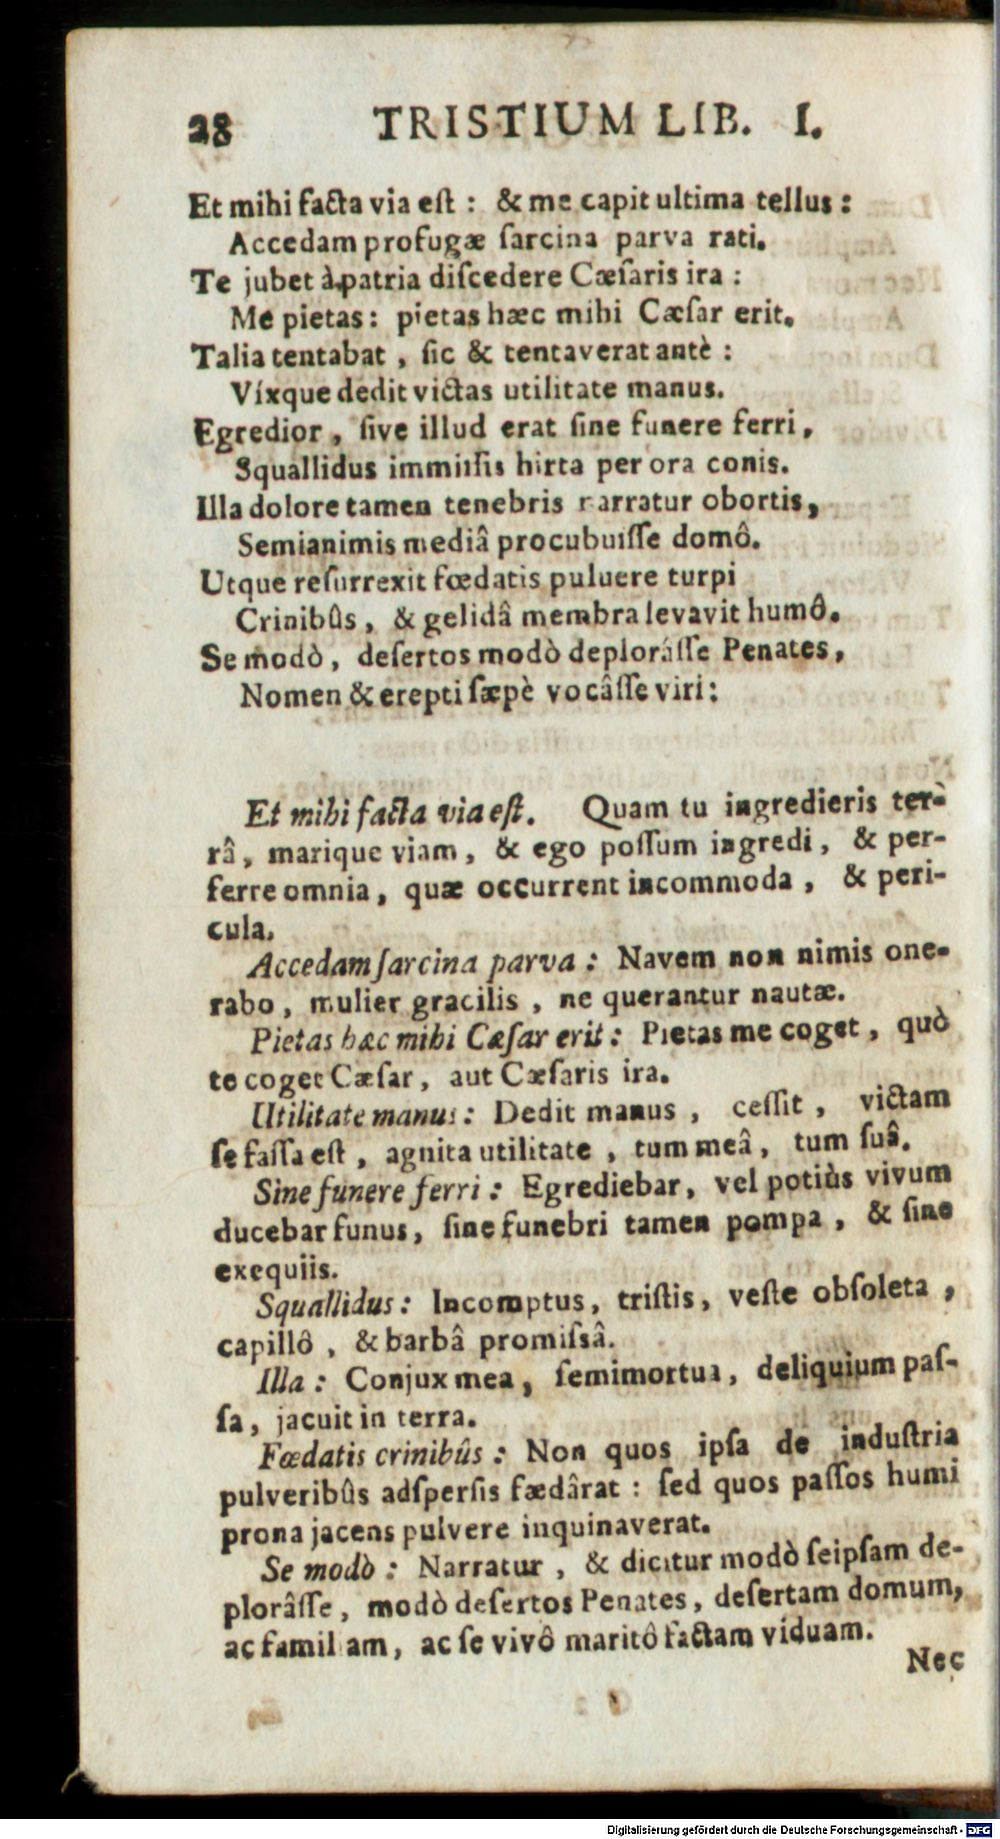 28 TRISTIUM LIB. I.
Et mihi facta via eſt : & me capit ultima tellus :
Accedam profugæ ſarcina parva rati.
Te jubet à patria diſcedere Cæſaris ira :
Me pietas : pietas hæc mihi Cæſar erit.
Talia tentabat , ſic & tentaverat antè :
Víxque dedit victas utilitate manus.
Egredior , ſive illud erat ſine funere ferri ,
Squallidus immiſſis hirta per ora comis.
Illa dolore tamen tenebris narratur obortis,
Semianimis mediâ procubuiſſe domô.
Utque reſurrexit fœdatis puluere turpi
Crinibûs , & gelidâ membra levavit humô.
Se modò , deſertos modò deplorâſſe Penates ,
Nomen & erepti ſæpè vocâſſe viri :
Et mihi facta via eſt. Quam tu ingredieris ter-
râ , marique viam , & ego poſſum ingredi , & per-
ferre omnia , quæ occurrent incommoda , & peri-
cula.
Accedam ſarcina parva : Navem non nimis one-
rabo , mulier gracilis , ne querantur nautæ.
Pietas hæc mihi Cæſar erit : Pietas me coget , quò
te coget Cæſar , aut Cæſaris ira.
Utilitate manus : Dedit manus , ceſſit , victam
ſe faſſa eſt , agnita utilitate , tum meâ , tum ſuâ.
Sine funere ferri : Egrediebar, vel potiùs vivum
ducebar funus, ſine funebri tamen pompa , & ſine
exequiis.
Squallidus : Incomptus, triſtis, veſte obſoleta ,
capillô , & barbâ promiſsâ.
Illa : Conjux mea , ſemimortua, deliquium paſ-
ſa, jacuit in terra.
Fœdatis crinibûs : Non quos ipſa de induſtria
pulveribûs adſperſis fædârat : ſed quos paſſos humi
prona jacens pulvere inquinaverat.
Se modò : Narratur , & dicitur modò ſeipſam de-
plorâſſe , modò deſertos Penates , deſertam domum,
ac familiam, ac ſe vivô maritô factam viduam.
Nec
Digitalisierung gefördert durch die Deutsche Forschungsgemeinschaft - DFG